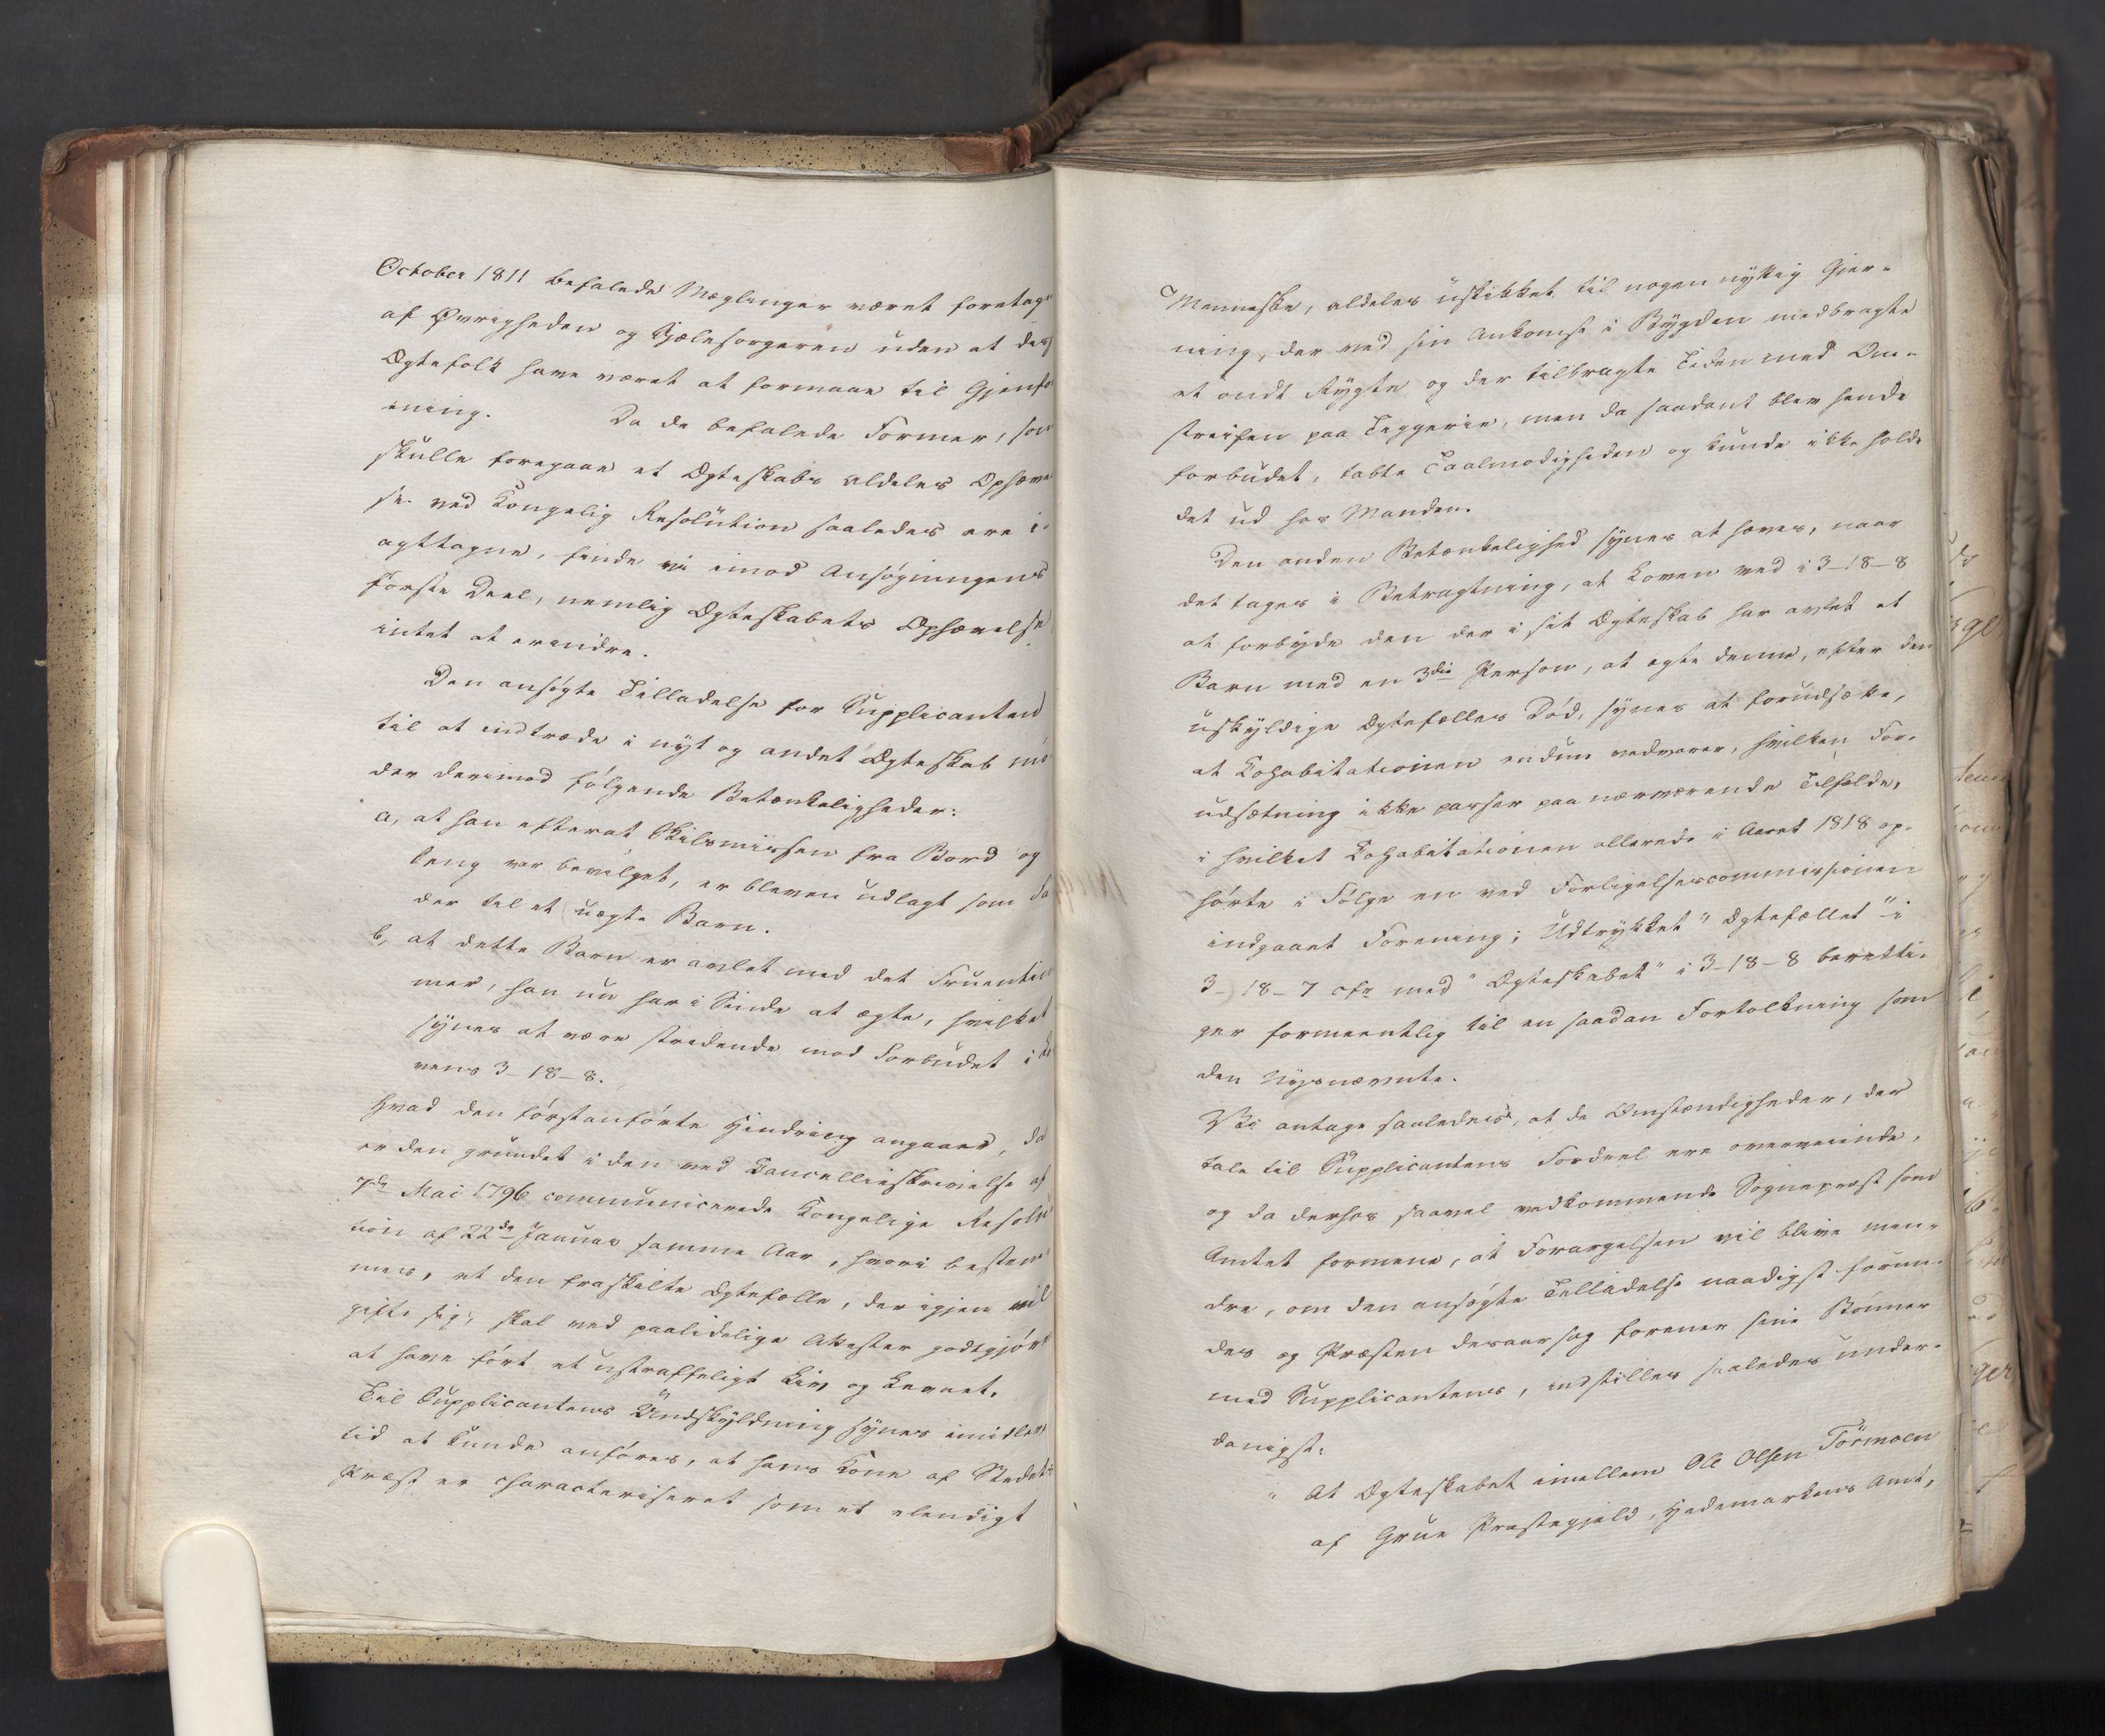 October 1811 befalede Mæglinger været foretagne
af Øvrigheden og Sjælesørgeren uden at disse
Ægtefolk have været at formaae til Gjenfor
ening. Da de befalede Former, som
skulle foregaae et Ægteskabs aldeles Ophævel
se ved Kongelig Resolution saaledes ere i-
agttagne, finde vi imod Ansøgningens
første Deel, nemlig Ægteskabets Ophævelse
intet at erindre.
Den ansøgte Tilladelse for Supplicanten
til at indtræde i nyt og andet Ægteskab mø-
der derimod følgende Betænkeligheder:
a, at han efterat Skilsmissen fra Bord og
Seng var bevilget, er bleven udlagt som Fa
der til et uægte Barn.
b, at dette Barn er avlet med det Fruentim
mer, han nu har i Sinde at ægte, hvilket
synes at være stridende mod Forbudet i Lo
vens 3-18-8.
Hvad den førstanførte Hindring angaaer, da
er den grundet i den ved Cancellieskrivelse af
7de Mai 1796 communicerede Kongelige Resolu
tion af 22de Januar samme Aar, hvori bestem
mes, at den fraskilte Ægtefælle, der igjen vil
gifte sig, skal ved paalidelige Attester godtgjøre
at have ført et ustraffeligt Liv og Levnet.
Til Supplicantens Undskyldning synes imidler
tid at kunde anføres, at hans Kone af Stedets
Præst er characteriseret som et elendigt
Menneske, aldeles uskikket til nogen nyttig Gjer-
ning, der ved sin Ankomst i Bygden medbragte
et ondt Rygte og der tilbragte Tiden med Om-
streifen paa Tiggerie, men da saadant blev hende
forbudet, tabte Taalmodigheden og kunde ikke holde
det ud hos Manden.
Den anden Betænkelighed synes at hæves, naar
det tages i Betragtning, at Loven ved i 3-18-8
at forbyde den der i sit Ægteskab har avlet et
Barn med en 3die Person, at ægte denne, efter den
uskyldige Ægtefælles Død, synes at forudsætte,
at Cohabitationen endnu vedvarer, hvilken For-
udsætning ikke passer paa nærværende Tilfælde,
i hvilket Cohabitationen allerede i Aaret 1818 op-
hørte i Følge en ved Forligelsescommissionen
indgaaet Forening; Udtrykket "Ægtefællet" i
3-18-7 cfr med "Ægteskabet" i 3-18-8 beretti-
ger formeentlig til en saadan Fortolkning som
den Nysnævnte.
Vi antage saaledes, at de Omstændigheder, der
tale til Supplicantens Fordeel ere overveiende,
og da derhos saavel vedkommende Sognepræst som
Amtet formene, at Forargelsen vil blive min-
dre, om den ansøgte Tilladelse naadigst forun-
des og Præsten desaarsag forener sine Bønner
med Supplicantens, indstilles saaledes under-
danigst:
" At Ægteskabet imellem Ole Olsen Törmoen
af Grue Præstegjeld, Hedemarkens Amt,